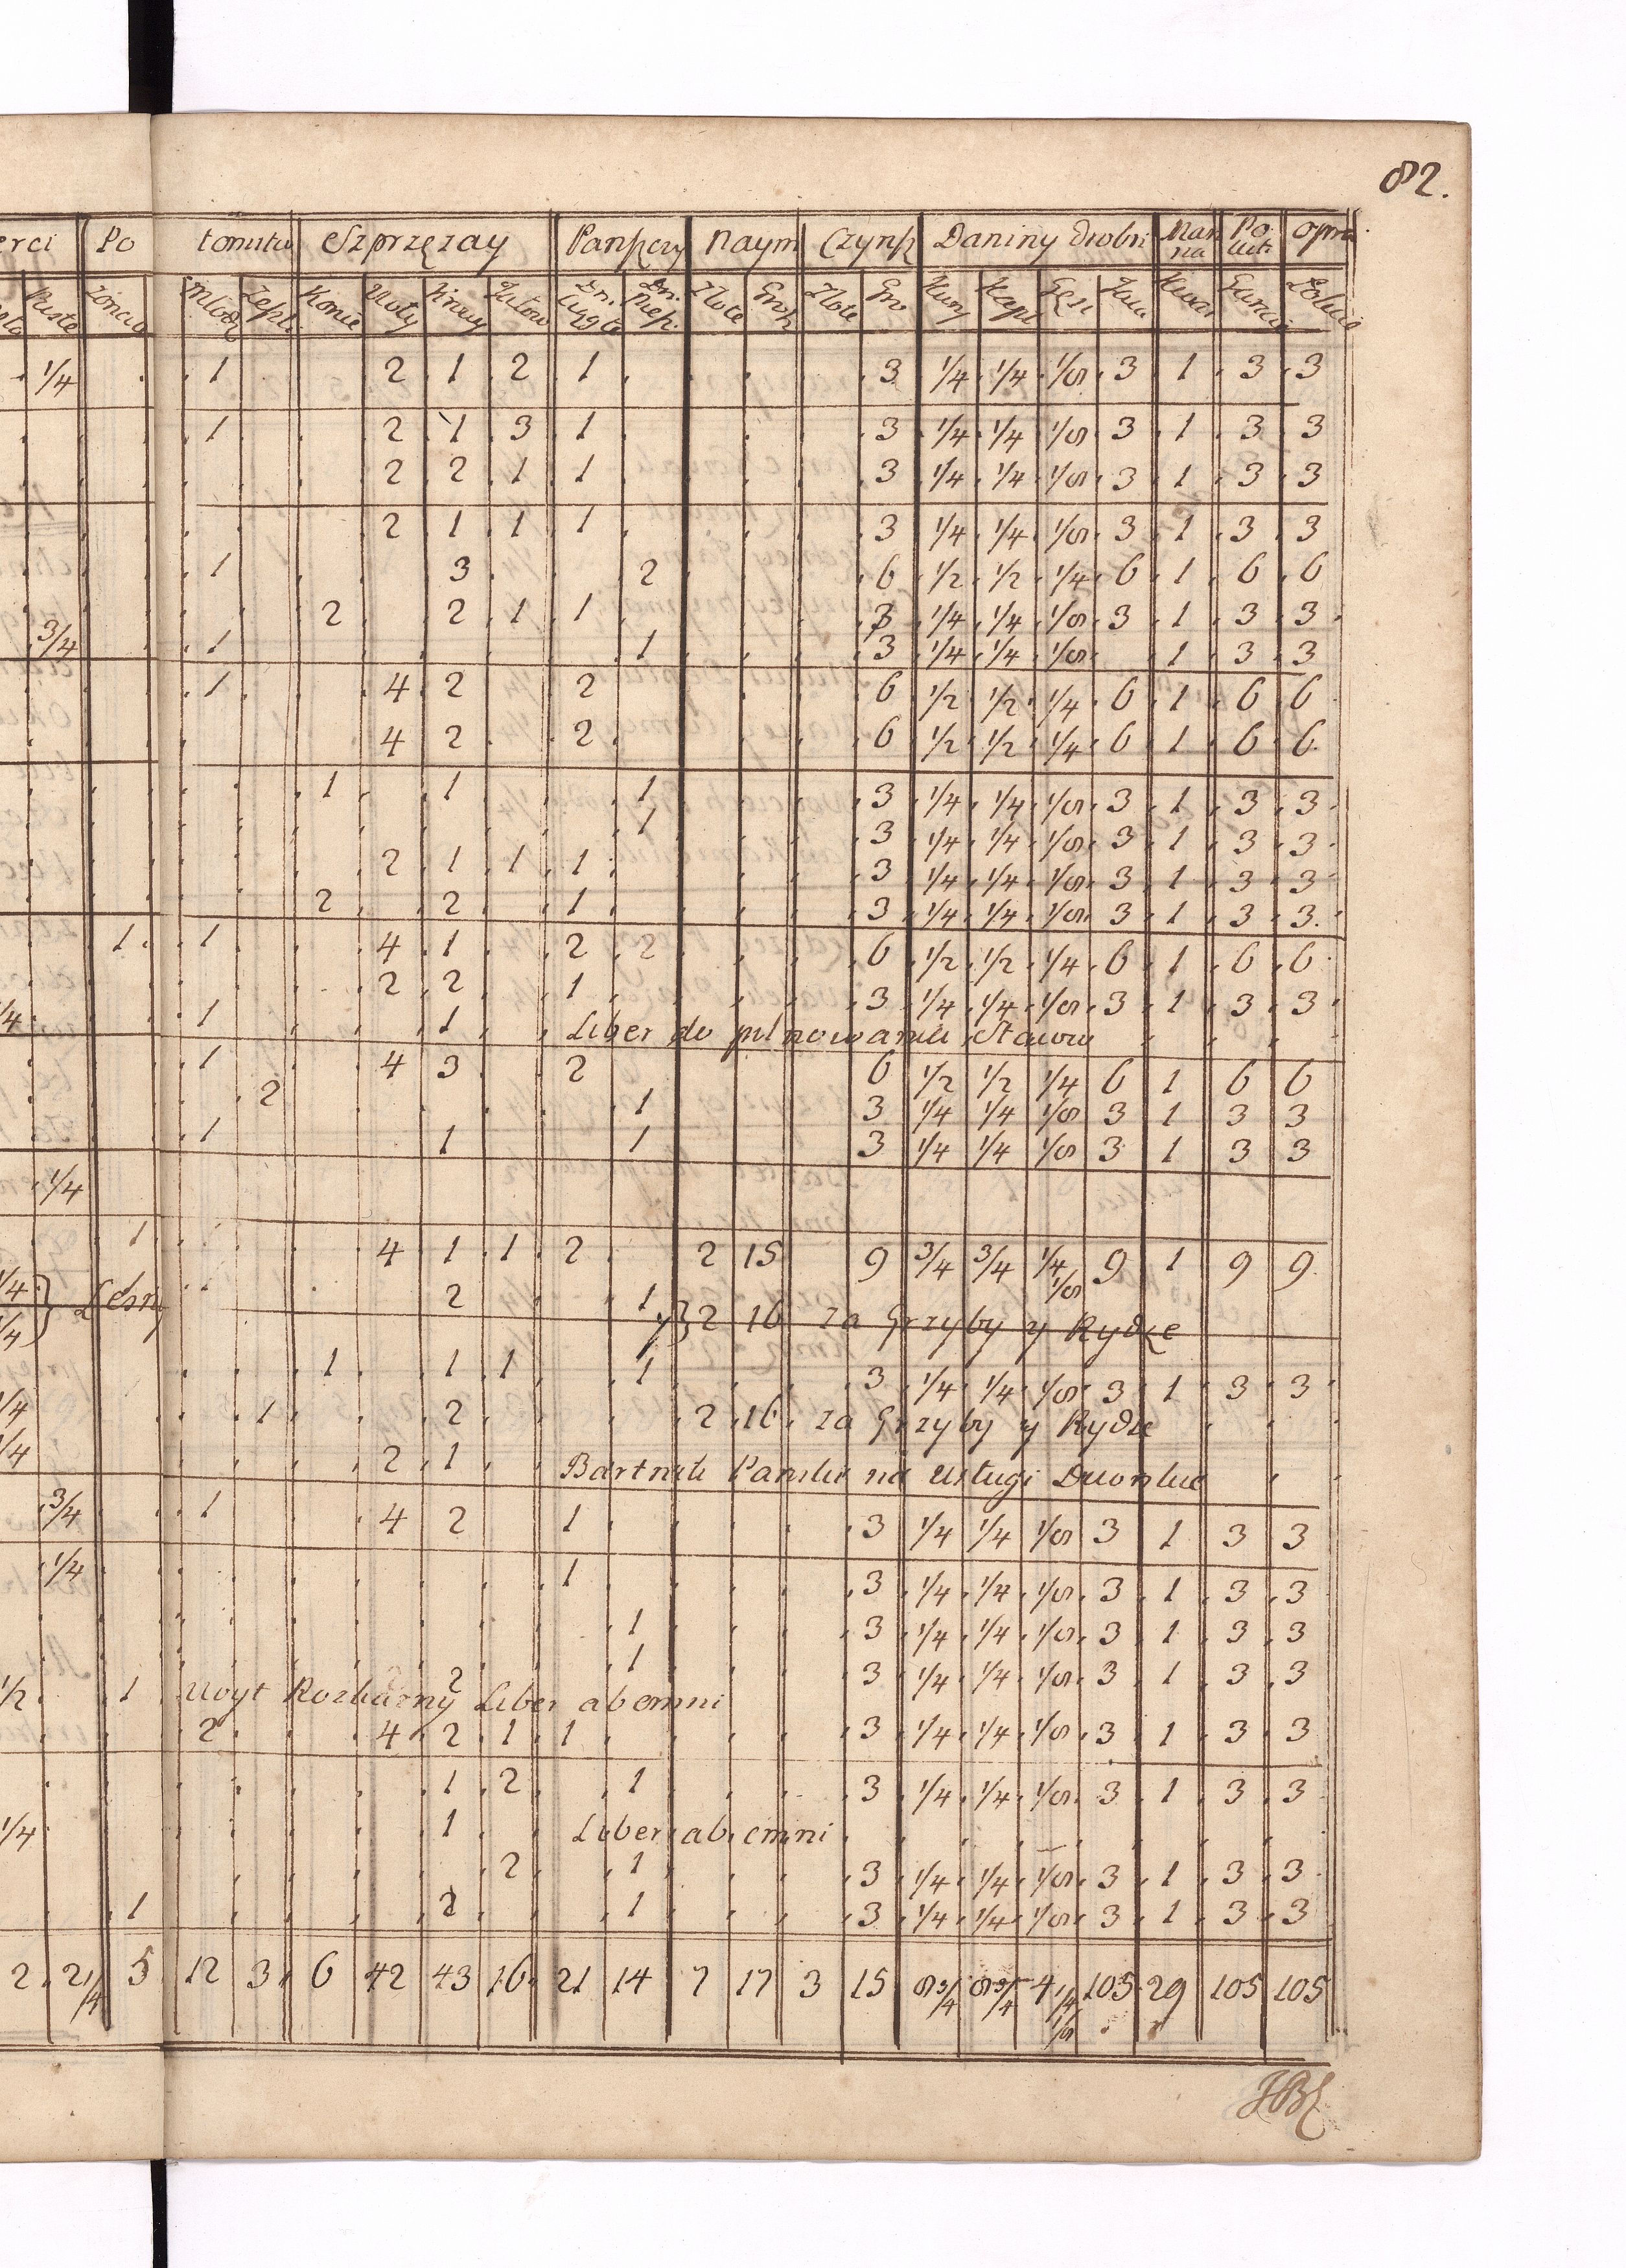 82.
Po tomstw Szprzęzay Panszczy Naym Czynsz Daniny drobn Po opra
Puste Konie Woły Krowy Złote Złote Gro Kury Kapł Gęsi
1/4 1 2 1 2 1 3 1/4 1/4 1/8 3 1 3 3
1 2 1 3 1 3 1/4 1/4 1/8 3 1 3 3
2 2 1 1 3 1/4 1/4 1/8 3 1 3 3
2 1 1 1 3 1/4 1/4 1/8 3 1 3 3
1 3 2 6 1/2 1/2 1/4 6 1 6 6
2 2 1 1 3 1/4 1/4 1/8 3 1 3 3
3/4 1 1 3 1/4 1/4 1/8 1 3 3
1 4 2 2 6 1/2 1/2 1/4 6 1 6 6
4 2 2 6 1/2 1/2 1/4 6 1 6 6
1 1 1 3 1/4 1/4 1/8 3 1 3 3
1 3 1/4 1/4 1/8 3 1 3 3
2 1 1 1 3 1/4 1/4 1/8 3 1 3 3
2 2 1 3 1/4 1/4 1/8 3 1 3 3
1 1 4 1 2 2 6 1/2 1/2 1/4 6 1 6 6
2 2 1 3 1/4 1/4 1/8 3 1 3 3
1/4 1 1 Liber do pilnowania Stawu
1 4 3 2 6 1/2 1/2 1/4 6 1 6 6
2 1 3 1/4 1/4 1/8 3 1 3 3
1 1 1 3 1/4 1/4 1/8 3 1 3 3
1/4
1 4 1 1 2 2 15 9 3/4 3/4 1/4 1/8 9 1 9 9
1/4 Lesny 2 1
1/4 } 2 16 za Grzyby y Rydze
1 1 1 1 3 1/4 1/4 1/8 3 1 3 3
1/4 1 2 2 16 za Grzyby y Rydze
1/4 2 1 Bartnik Panski na Usługi Dworskie
3/4 1 4 2 1 3 1/4 1/4 1/8 3 1 3 3
1/4 1 3 1/4 1/4 1/8 3 1 3 3
1 3 1/4 1/4 1/8 3 1 3 3
1 3 1/4 1/4 1/8 3 1 3 3
1/2 1 Woyt Liber ab omni 2
2 4 2 1 1 3 1/4 1/4 1/8 3 1 3 3
1 2 1 3 1/4 1/4 1/8 3 1 3 3
1/4 1 Liber ab omni
2 1 3 1/4 1/4 1/8 3 1 3 3
1 2 1 3 1/4 1/4 1/8 3 1 3 3
2 2 1/4 5 12 3 6 42 43 16 21 14 7 17 3 15 8 3/4 8 3/4 4 1/4 1/8 105 29 105 105